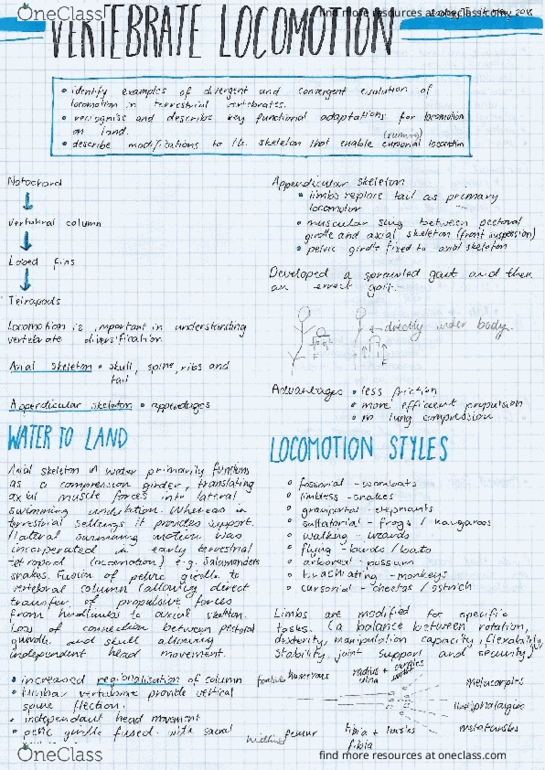 OneClass
find more resources at oneclass.com
VERTEBRATE LOCOMOTION
• identify examples of divergent and convergent evolution of
locomotion in terrestrial vertebrates.
• recognise and describe key functional adaptations for locomotion
on land.
(running)
• describe modifications to the skeleton that enable cursorial locomotion
Notochord
Vertebral column
Lobed fins
Tetrapods
Locomotion is important in understanding
vertebrate diversification
Axial skeleton • skull, spine, ribs and
tail
Appendicular skeleton • appendages
WATER TO LAND
Axial skeleton in water primarily functions
as a compression girder, translating
axial muscle forces into lateral
swimming undulation. Whereas in
terrestrial settings it provides support.
Lateral swimming motion was
incorporated in early terrestrial
tetrapod (locomotion) e.g. Salamanders
snakes. Fusion of pelvic girdle to
vertebral column (allowing direct
transfer of propulsive forces
from hindlimbs to axial skeleton.
Loss of connection between pectoral
girdle and skull allowing
independent head movement.
• increased regionalisation of column
• lumbar vertebrae provide vertical
spine flection.
• independant head movement
• pelvic girdle fused with sacral
Appendicular skeleton
• limbs replace tail as primary
locomotor
• muscular sling between pectoral
girdle and axial skeleton (front suspension)
• pelvic girdle fixed to axial skeleton
Developed a sprawled gait and then
an erect gait.
directly under body.
Advantages • less friction
• more efficient propulsion
• no lung compression
LOCOMOTION STYLES
• fossorial - wombats
• limbless - snakes
• graviportal - elephants
• saltatorial - frogs / kangaroos
• walking - lizards
• flying - birds / bats
• arboreal - possum
• brachiating - monkeys
• cursorial - cheetas / ostrich
Limbs are modified for specific
tasks. (a balance between rotation,
dexterity, manipulation capacity, flexability,
stability, joint support and security)
forelimb humerous
radius +
ulna
carples
metacarples
phalanges
metatarsles
hindlimb femur
tibia + tarsles
fibia
OneClass
find more resources at oneclass.com